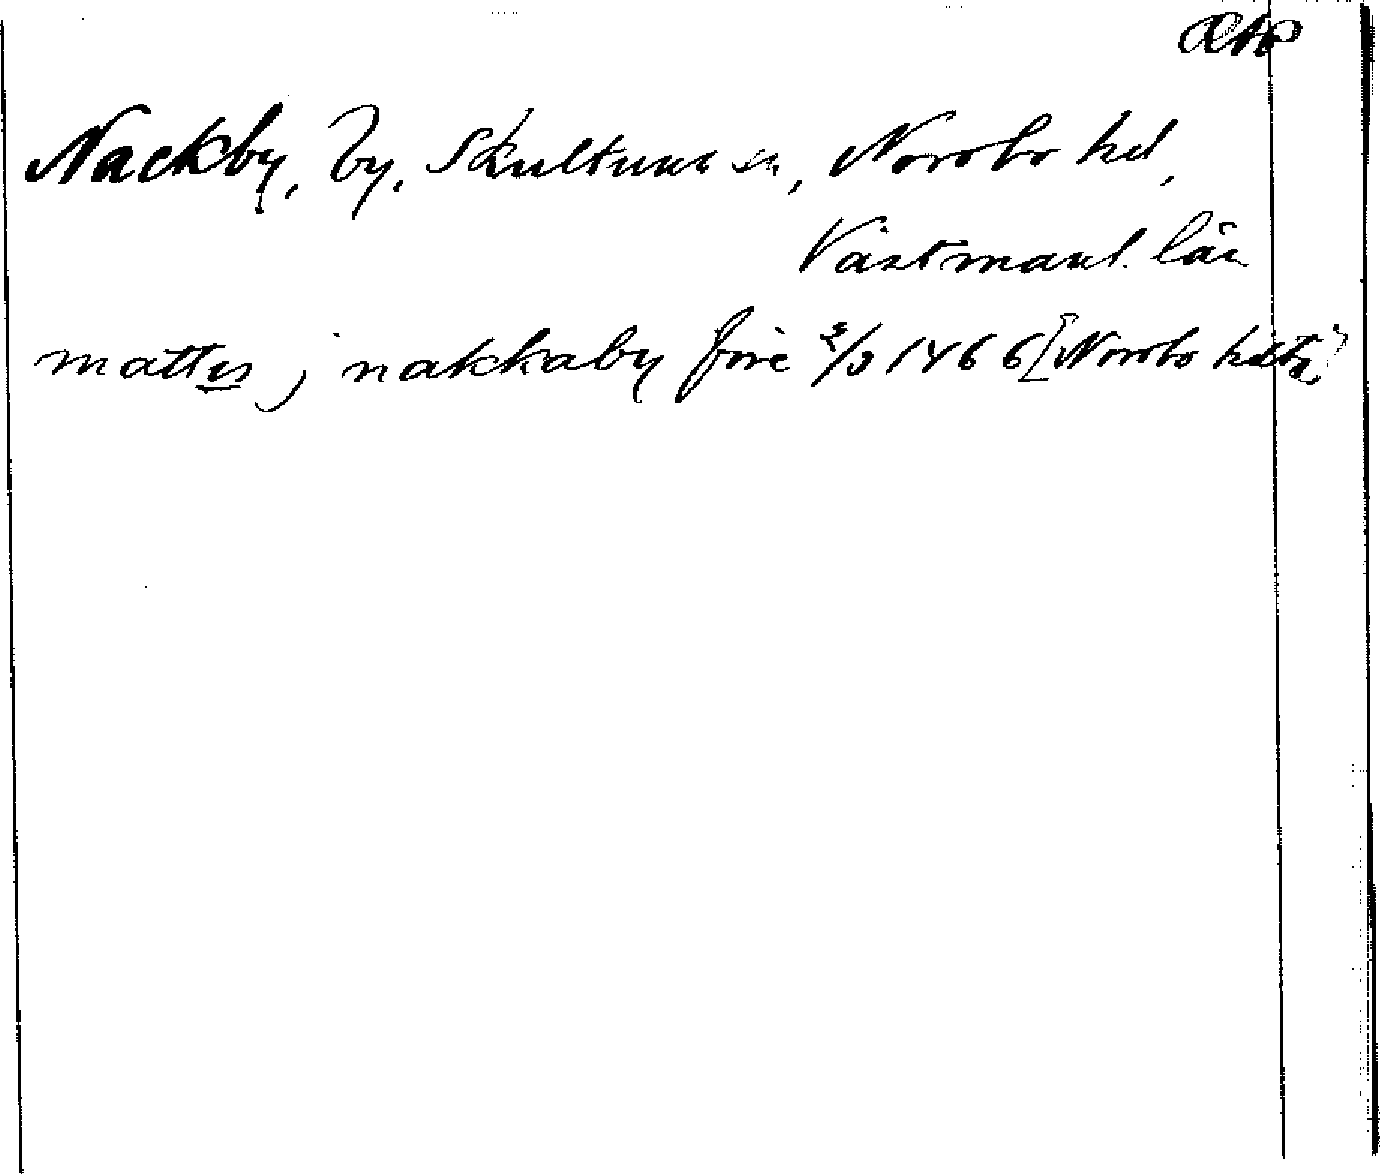 Nackby, by, Skultuna sn, Norrbo hd,
Västmanl. län
mattis j nakkaby före 2/3 1466 [Norrbo hds